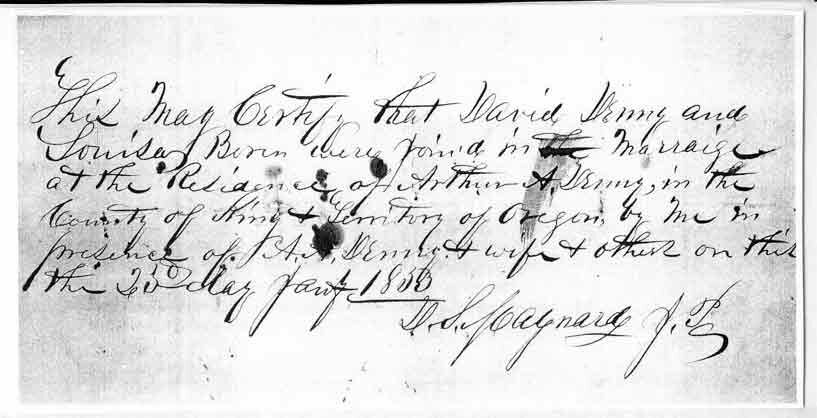 This May Certify that David Denny and
Louisa Boren were joind in the Marraige
at the Residence, of Arthur A. Denny, in the
County of King & Territory of Oregon, by me in
presence of A. Denny & wife & others on this
the 23d day Jany 1853
D. S. Maynard J. P.